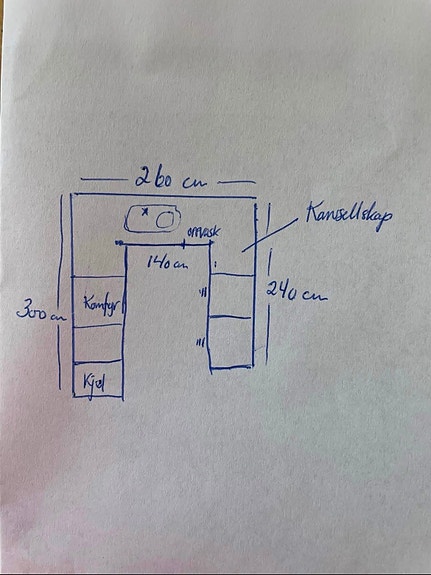 260 cm
Karusellskap
oppvask
140 cm
Komfyr
300 cm
240 cm
Kjøl